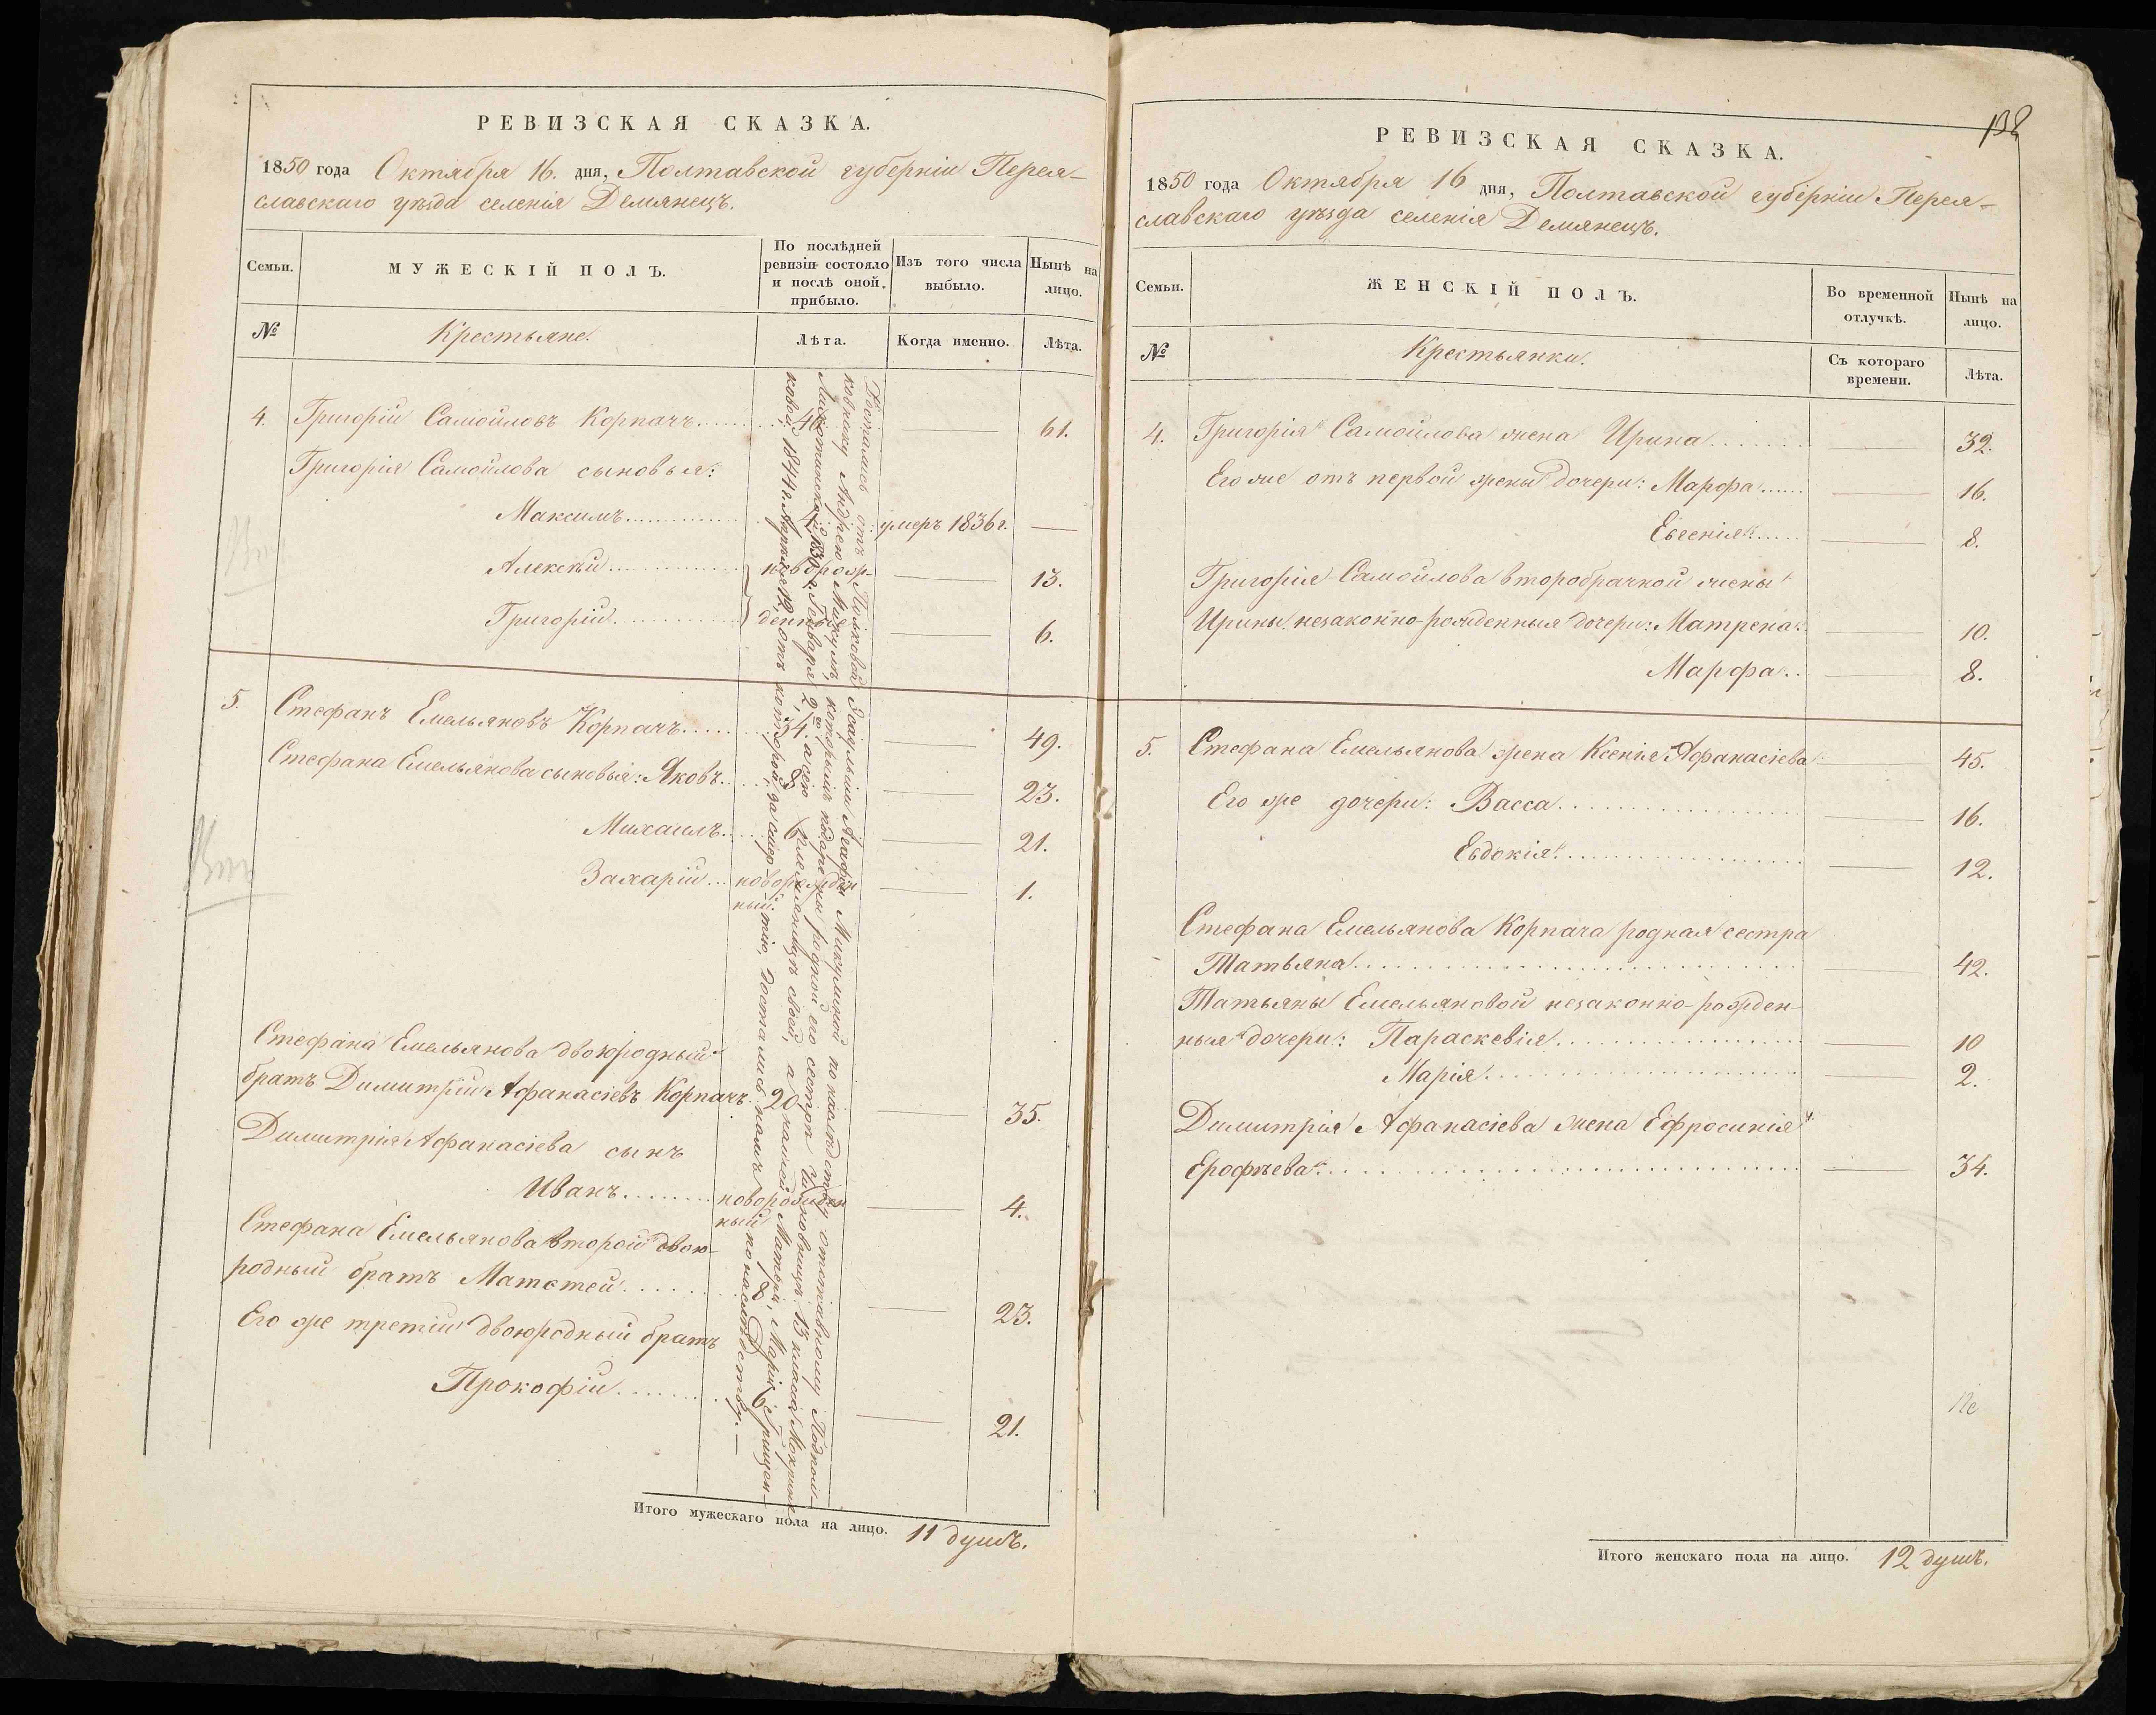 РЕВИЗСКАЯ СКАЗКА.
1850 года Октября 16. дня, Полтавской губерніи Перея-
славскаго уѣзда селенія Демянецъ.
Семьи.
МУЖЕСКІЙ ПОЛЪ.
По послѣдней
ревизіи состояло
и послѣ оной
прибыло.
Изъ того числа
выбыло.
Нынѣ на
лицо.
№
Крестьяне.
Лѣта.
Когда именно.
Лѣта.
4. Григорій Самойловъ Корпачъ 46. 61.
Григорія Самойлова сыновья:
Максимъ умеръ 1836 г.
Алексѣй новорож- 13.
Григорій денные 6.
5. Стефанъ Емельяновъ Корпачъ 34. 49.
Стефана Емельянова сыновья: Яковъ 8 23.
Михаилъ 6 21.
Захарій новорожден 1.
ный.
Стефана Емельянова двоюродный
братъ Димитрій Афанасіевъ Корпачъ 20 35.
Димитрія Афанасіева сынъ
Иванъ новорожден 4.
ный
Стефана Емельянова второй двою-
родный братъ Матѳей 8 23.
Его же третій двоюродный братъ
Прокофій 6 21.
Достались отъ Полковой Эсаульши Агафіи Микулиной по наслѣдству отставному Подпол-
ковнику Андрею Микулѣ, которымъ подарены родной его сестрѣ Чиновницѣ 13 класса Мокринѣ
1830 г. Генваря 2, а сею племянницѣ своей, а нашей Матери, Маріи Грицен-
ковой 1844 г. Апрѣля 12, отъ которой, за смер-
тію, достались намъ по наслѣдству. —
Итого мужескаго пола на лицо. 11 душъ.
138
РЕВИЗСКАЯ СКАЗКА.
1850 года Октября 16 дня, Полтавской губерніи Перея-
славскаго уѣзда селенія Демянецъ.
Семьи.
ЖЕНСКІЙ ПОЛЪ.
Во временной
отлучкѣ.
Нынѣ на
лицо.
№
Крестьянки.
Съ котораго
времени.
Лѣта.
4. Григорія Самойлова жена Ирина 32.
Его же отъ первой жены дочери: Марфа 16.
Евгенія 8.
Григорія Самойлова второбрачной жены
Ирины незаконно-рожденныя дочери: Матрена 10.
Марфа 8.
5. Стефана Емельянова жена Ксенія Афанасіева 45.
Его же дочери: Васса 16.
Евдокія 12.
Стефана Емельянова Корпача родная сестра
Татьяна 42.
Татьяны Емельяновой незаконно-рожден-
ныя дочери: Параскевія 10
Марія 2.
Димитрія Афанасіева жена Ефросинія
Ерофѣева 34.
Итого женскаго пола на лицо. 12 душъ.